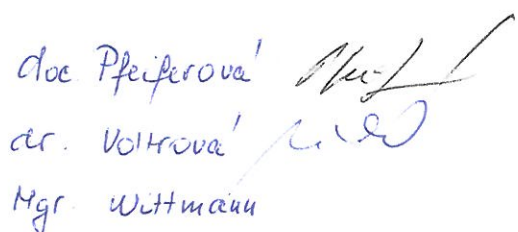 doc Pfeiferová
dr. Voltrová
Mgr. Wittmann